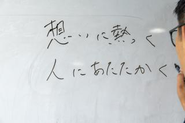 想いに熱く
人にあたたかく